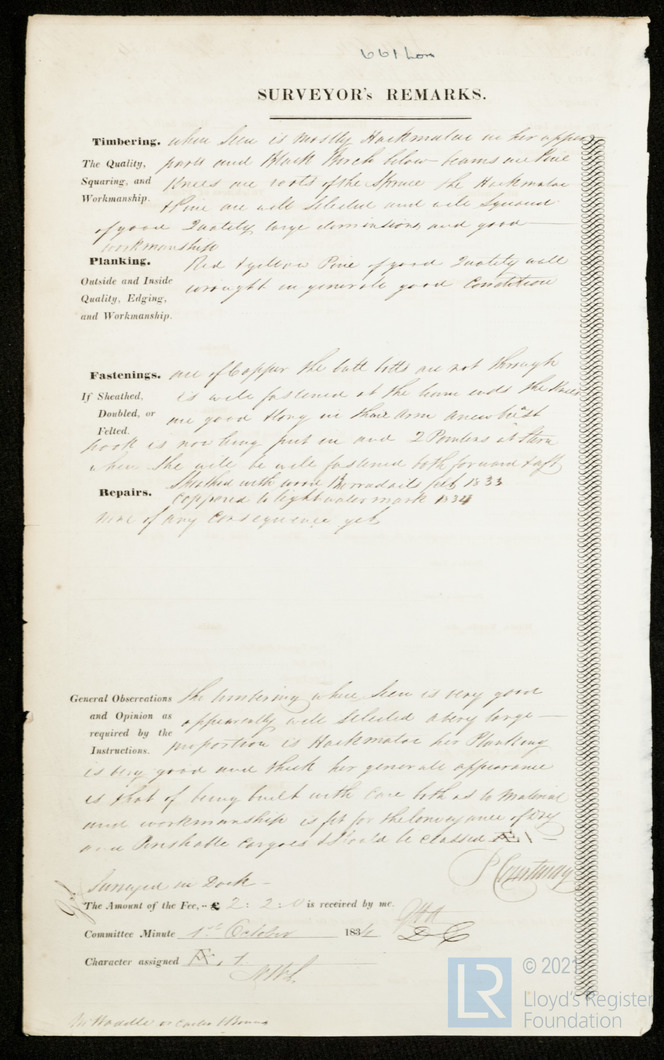 661 Lon
SURVEYOR's REMARKS.
Timbering. when seen is mostly Hackmatac in her upper
The Quality, parts and Black Birch below beams are Pine
Squaring, and Knees are roots of the Spruce the Hackmatac
Workmanship. & Pine are well selected and well squared
of good Quality large dimensions and good
workmanship
Planking. Red & yellow Pine of good Quality well
Outside and Inside wrought in generale good Condition
Quality, Edging,
and Workmanship.
Fastenings. are of Copper the butt bolts are not through
If Sheathed, is well fastened at the beam ends the Knees
Doubled, or are good & long in their arm a new
Felted.
hook is now being put in and 2 Pointers at Stern
when she will be well fastened both forward & aft
Sheathed with wood 1833
Repairs. coppered to light water mark 1834
None of any consequence yet
General Observations the timbering where seen is very good
and Opinion as apparently well selected a very large
required by the proportion is Hackmatac her Planking
Instructions.
is very good and thick her generale appearance
is that of being built with care both as to Material
and workmanship is fit for the Conveyance of Dry
and Perishable cargoes & should be classed Æ 1
P Courtenay
Surveyed in Dock
The Amount of the Fee, £ 2: 2: 0 is received by me.
Committee Minute 1st October 1834
Character assigned Æ. 1
© 2021
LR
Lloyd's Register
Foundation